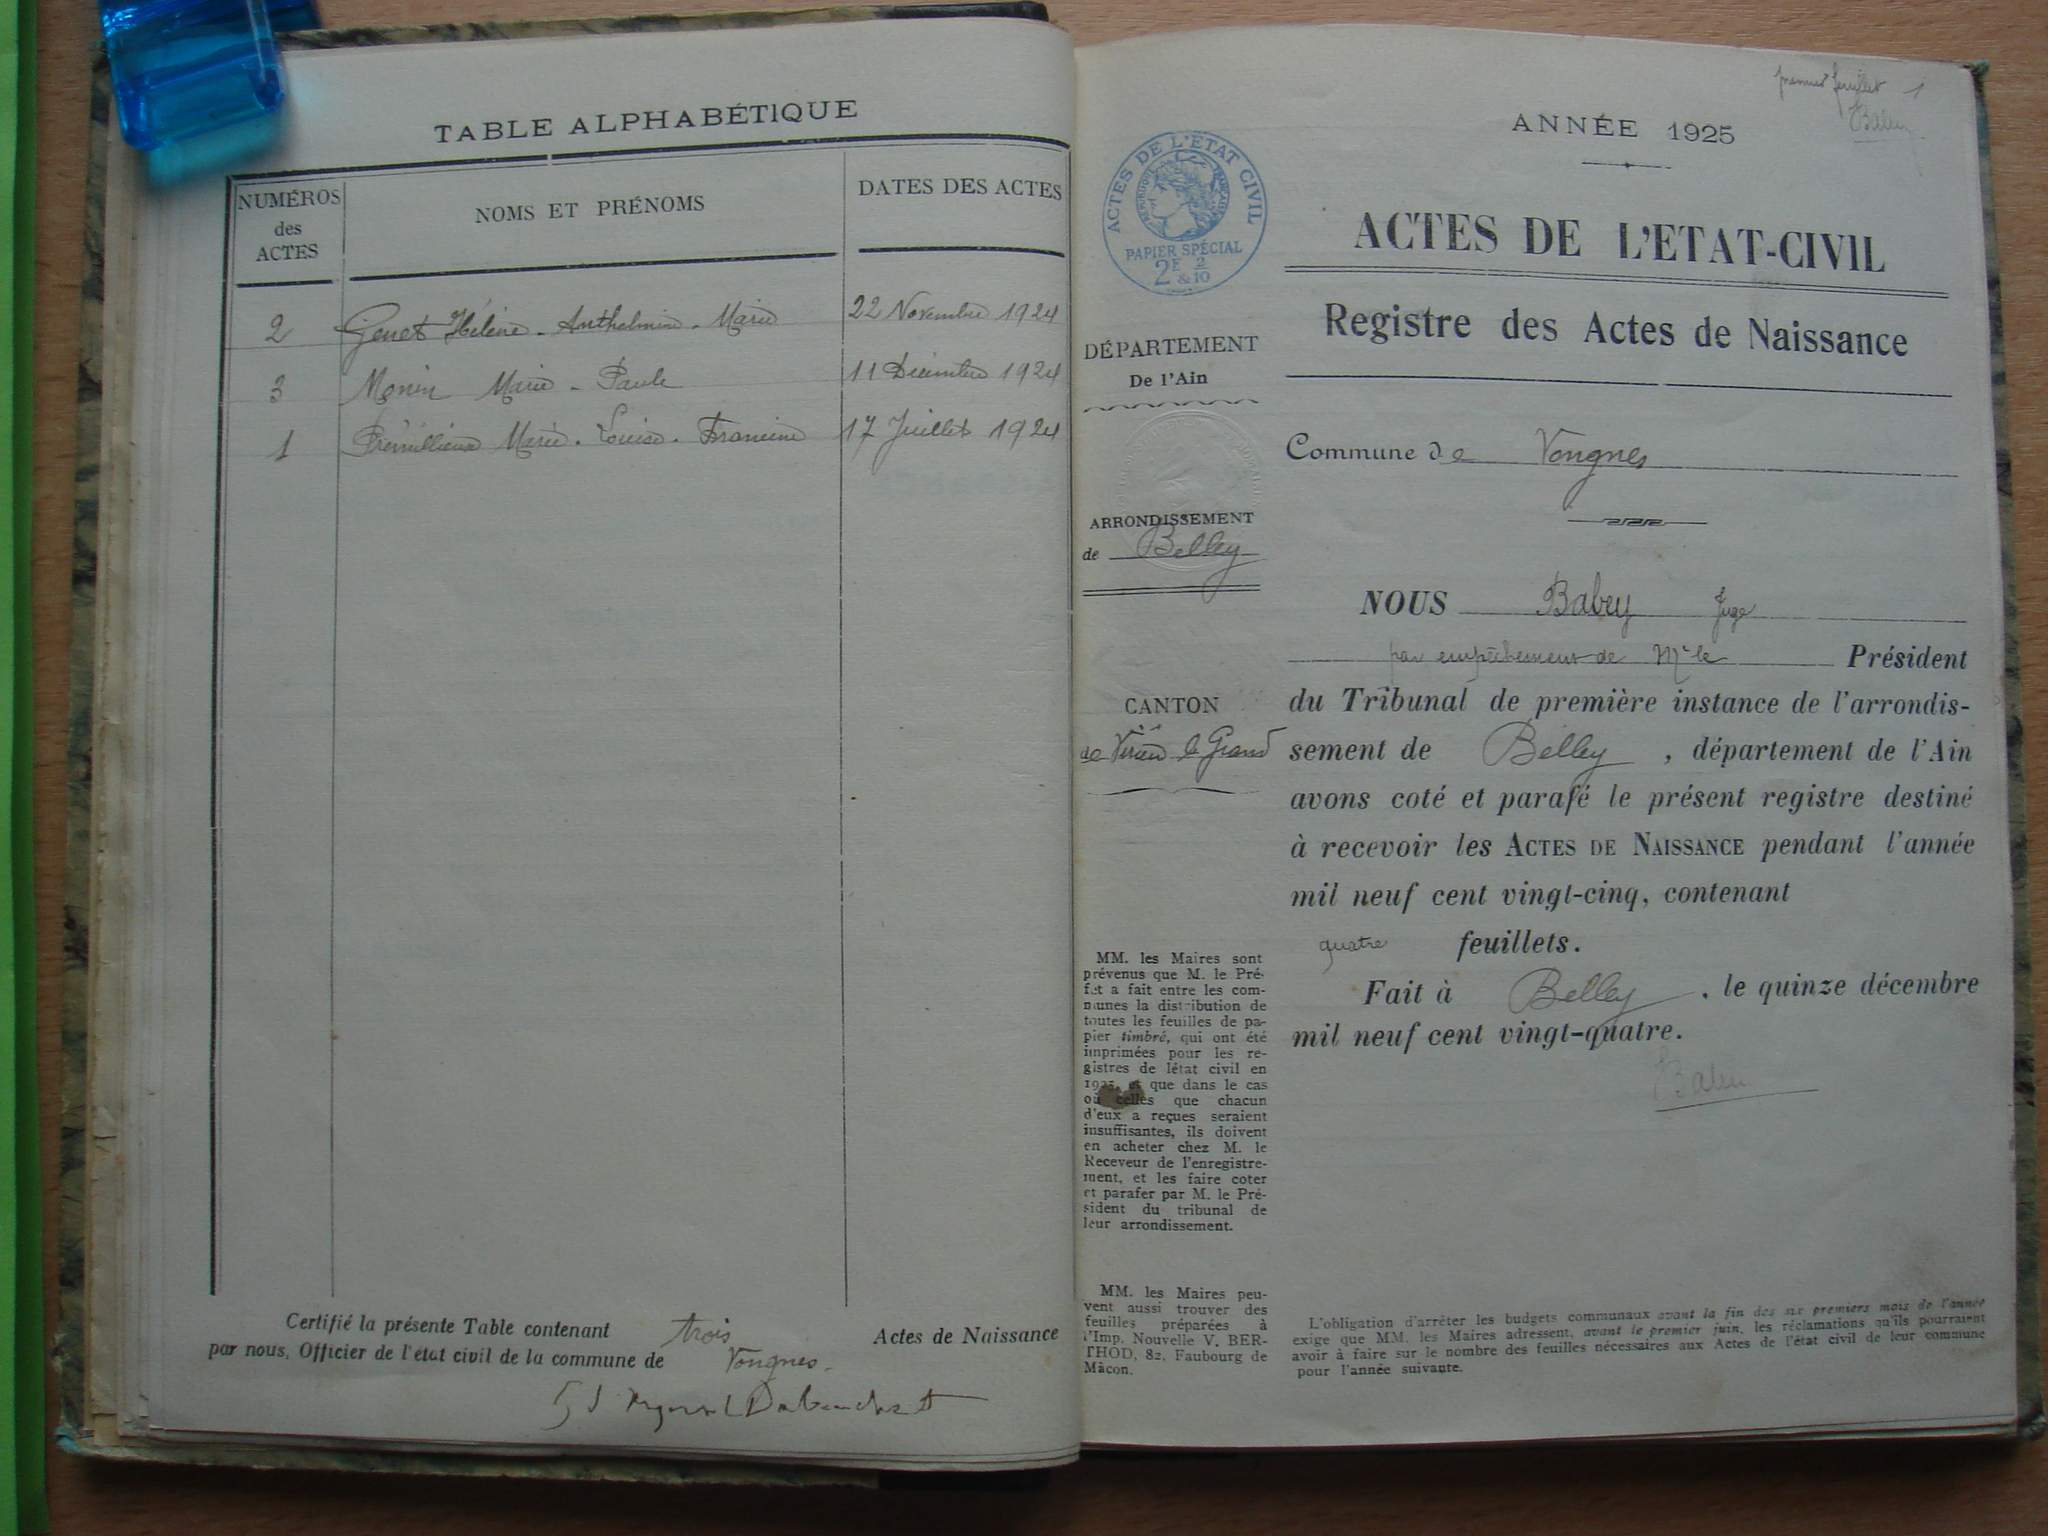 TABLE ALPHABÉTIQUE
NUMÉROS
des
ACTES
NOMS ET PRÉNOMS
DATES DES ACTES
2 Genet Hélène - Anthelmine - Marie 22 Novembre 1924
3 Monin Marie - Paule 11 Décembre 1924
1 Prémillieux Marie - Louise - Francine 17 Juillet 1924
Certifié la présente Table contenant trois Actes de Naissance
par nous, Officier de l'état civil de la commune de Vongnes.
premier feuillet 1
Babey
ANNÉE 1925
ACTES DE L'ÉTAT CIVIL
RÉPUBLIQUE FRANÇAISE
PAPIER SPÉCIAL
2F & 2/10
ACTES DE L'ETAT-CIVIL
Registre des Actes de Naissance
DÉPARTEMENT
De l'Ain
Commune de Vongnes
ARRONDISSEMENT
de Belley
CANTON
de Virieu le Grand
NOUS Babey Juge
par empêchement de Mr le Président
du Tribunal de première instance de l'arrondis-
sement de Belley, département de l'Ain
avons coté et parafé le présent registre destiné
à recevoir les ACTES DE NAISSANCE pendant l'année
mil neuf cent vingt-cinq, contenant
quatre feuillets.
Fait à Belley, le quinze décembre
mil neuf cent vingt-quatre.
Babey
MM. les Maires sont
prévenus que M. le Pré-
fet a fait entre les com-
munes la distribution de
toutes les feuilles de pa-
pier timbré, qui ont été
imprimées pour les re-
gistres de létat civil en
1925, et que dans le cas
où celles que chacun
d'eux a reçues seraient
insuffisantes, ils doivent
en acheter chez M. le
Receveur de l'enregistre-
ment, et les faire coter
et parafer par M. le Pré-
sident du tribunal de
leur arrondissement.
MM. les Maires peu-
vent aussi trouver des
feuilles préparées à
l'Imp. Nouvelle V. BER-
THOD, 82, Faubourg de
Mâcon.
L'obligation d'arrêter les budgets communaux avant la fin des six premiers mois de l'année
exige que MM. les Maires adressent, avant le premier juin, les réclamations qu'ils pourraient
avoir à faire sur le nombre des feuilles nécessaires aux Actes de l'état civil de leur commune
pour l'année suivante.